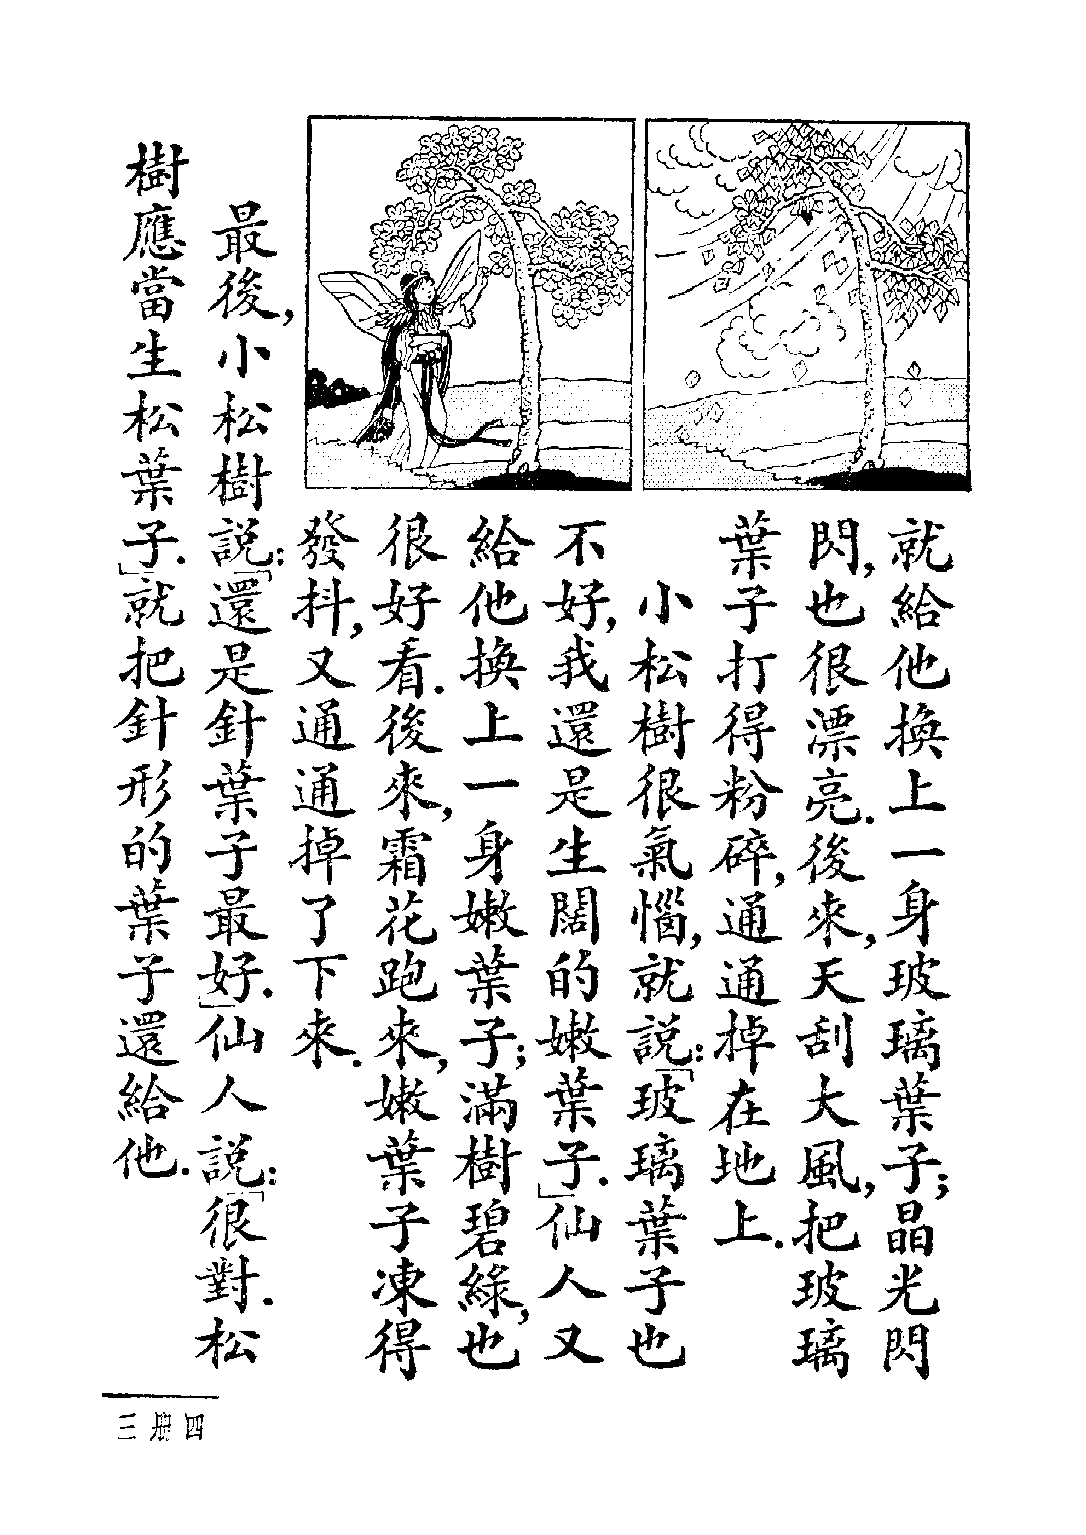 就給他換上一身玻璃葉子;晶光閃
閃,也很漂亮.後來,天刮大風,把玻璃
葉子打得粉碎,通通掉在地上.
小松樹很氣惱,就說:「玻璃葉子也
不好,我還是生闊的嫩葉子.」仙人又
給他換上一身嫩葉子;滿樹碧綠,也
很好看.後來,霜花跑來,嫩葉子凍得
發抖,又通通掉了下來.
最後,小松樹說:「還是針葉子最好.」仙人說:「很對.松
樹應當生松葉子.」就把針形的葉子還給他.
三册四